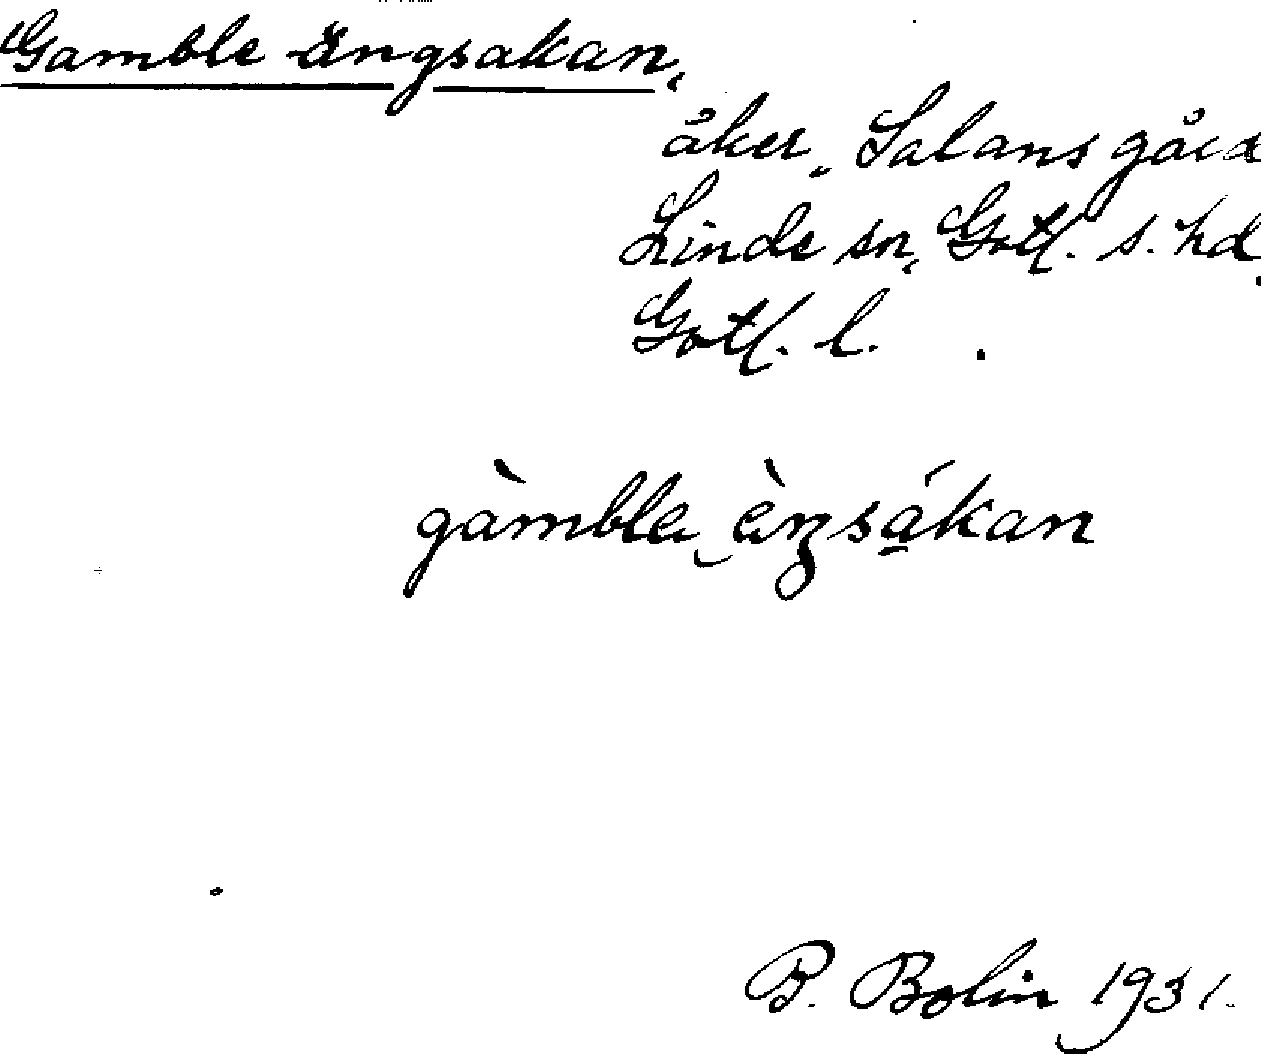 Gamble ängsakan,
åker, Salans gård
Linde sn, Gotl. s. hd,
Gotl. l.
gàmblę èŋsákan
B. Bolin 1931.